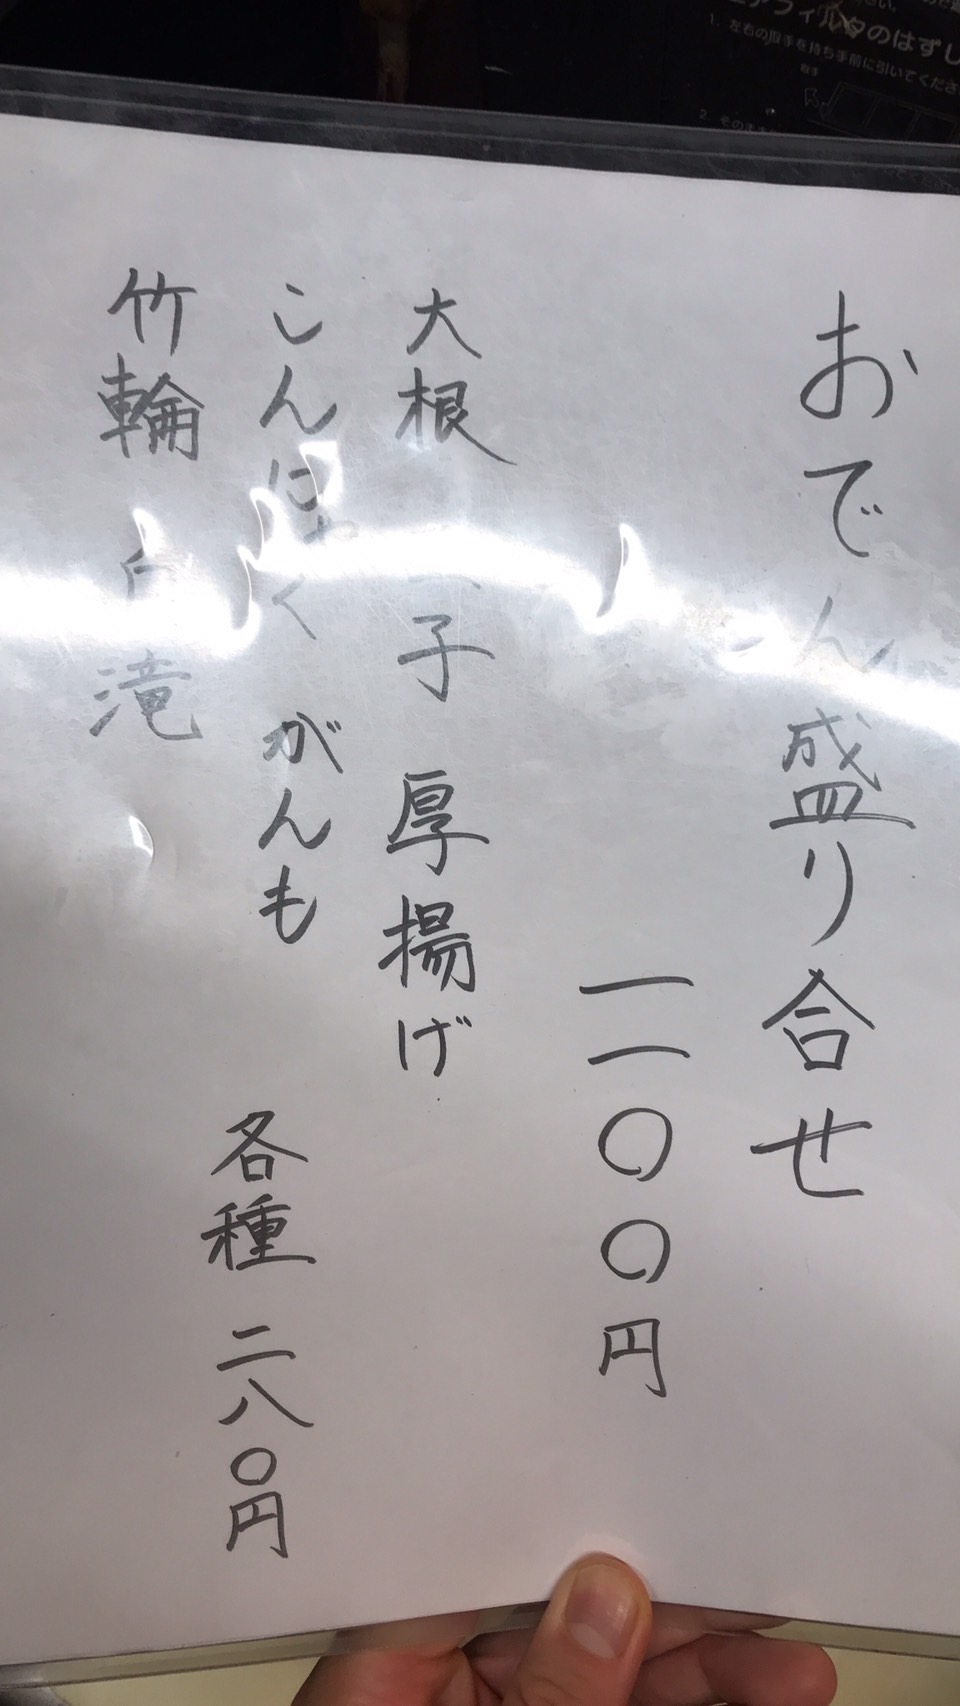 おでん盛り合せ
一一〇〇円
大根 子 厚揚げ
こんにゃく がんも
竹輪 白滝
各種 二八〇円
エアフィルタのはずし
1. 左右の取手を持ち手前に引いてくださ
取手